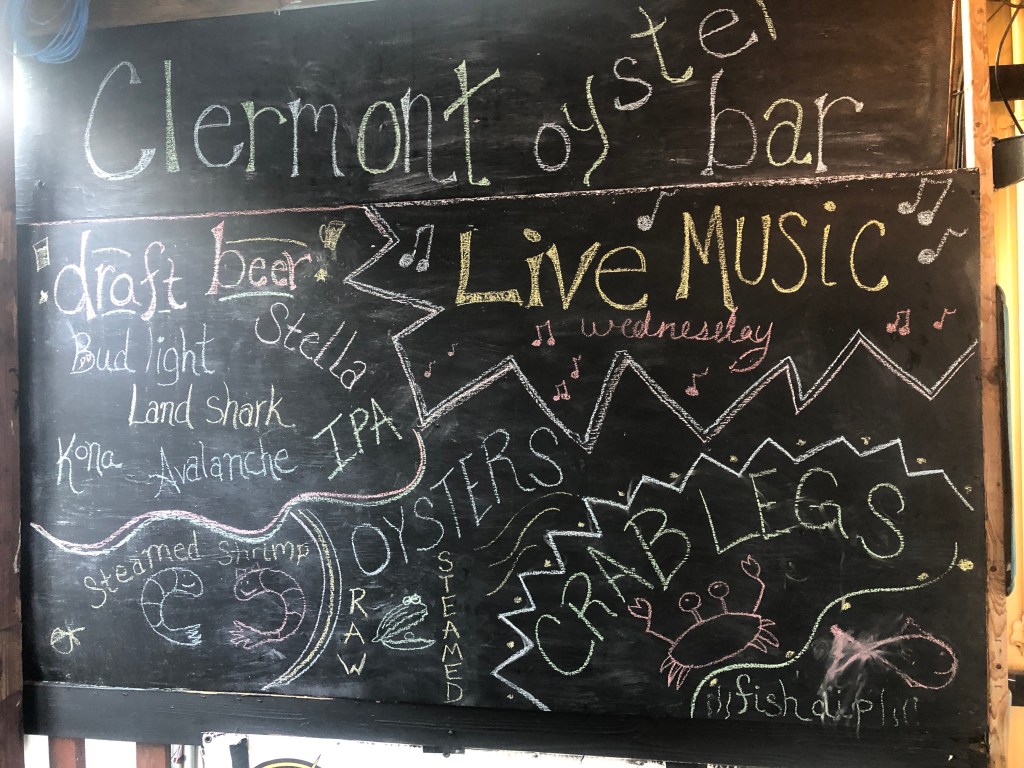 Clermont oyster bar
draft beer
Bud light
Stella
Land Shark
Kona
Avalanche
IPA
Live Music
wednesday
Steamed Shrimp
OYSTERS
RAW
STEAMED
CRAB LEGS
fish dip